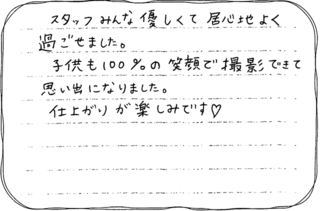 スタッフみんな優しくて居心地よく
過ごせました。
子供も100%の笑顔で撮影できて
思い出になりました。
仕上がりが楽しみです♡